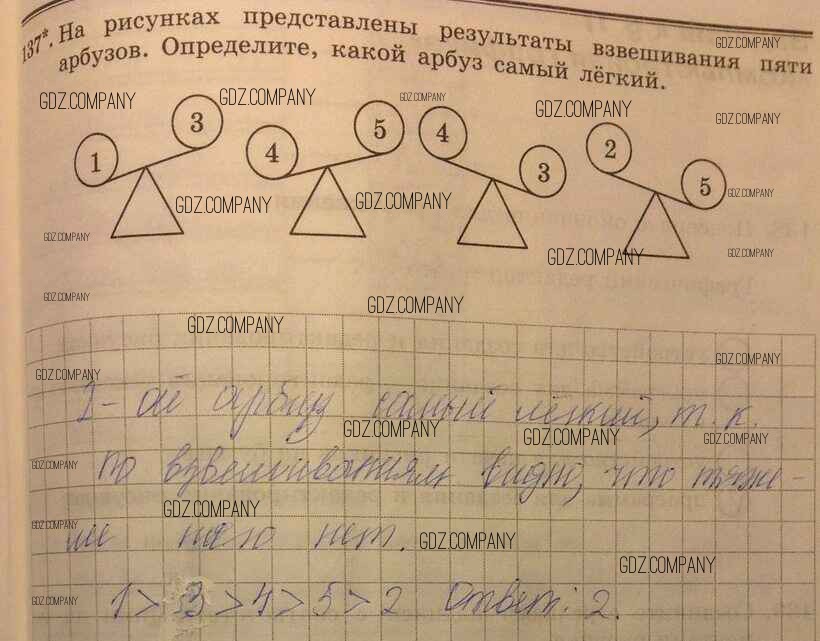 137*. На рисунках представлены результаты взвешивания пяти
арбузов. Определите, какой арбуз самый лёгкий.
GDZ.COMPANY
GDZ.COMPANY
GDZ.COMPANY
GDZ.COMPANY
GDZ.COMPANY
GDZ.COMPANY
1 3 4 5 4 3 2 5
GDZ.COMPANY
GDZ.COMPANY
GDZ.COMPANY
GDZ.COMPANY
GDZ.COMPANY
GDZ.COMPANY
GDZ.COMPANY
GDZ.COMPANY
GDZ.COMPANY
GDZ.COMPANY
GDZ.COMPANY
2-ой арбуз самый лёгкий, т. к.
GDZ.COMPANY
GDZ.COMPANY
GDZ.COMPANY
по взвешиваниям видно, что
GDZ.COMPANY
GDZ.COMPANY
GDZ.COMPANY
него нет.
GDZ.COMPANY
GDZ.COMPANY
1 > 3 > 4 > 5 > 2 Ответ: 2.
GDZ.COMPANY